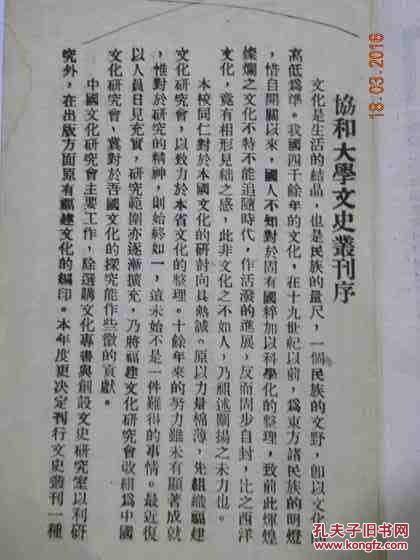 協和大學文史叢刊序
文化是生活的結晶，也是民族的量尺，一個民族的文野，卽以文化
高低爲準。我國四千餘年的文化，在十九世紀以前，爲東方諸民族的明燈
，惜自開關以來，國人不知對於固有國粹加以科學化的整理，致前此輝煌
燦爛之文化不特不能追隨時代，作活潑的進展，反而固步自封，比之西洋
文化，竟有相形見絀之感，此非文化之不如人，乃祖述闡揚之未力也。
本校同仁對於本國文化的研討向具熱誠。原以力量棉薄，先組織福建
文化研究會，以致力於本省文化的整理。十餘年來的努力雖未有顯著成就
，惟對於研究的精神，則始終如一，這未始不是一件難得的事情。最近復
以人員日見充實，研究範圍亦逐漸擴充，乃將福建文化研究會改組爲中國
文化研究會，冀對於吾國文化的探究能作些微的貢獻。
中國文化研究會主要工作，除選購文化專書與創設文史研究室以利研
究外，在出版方面原有福建文化的編印。本年度更決定刋行文史叢刊一種
18.03.2016
孔夫子旧书网